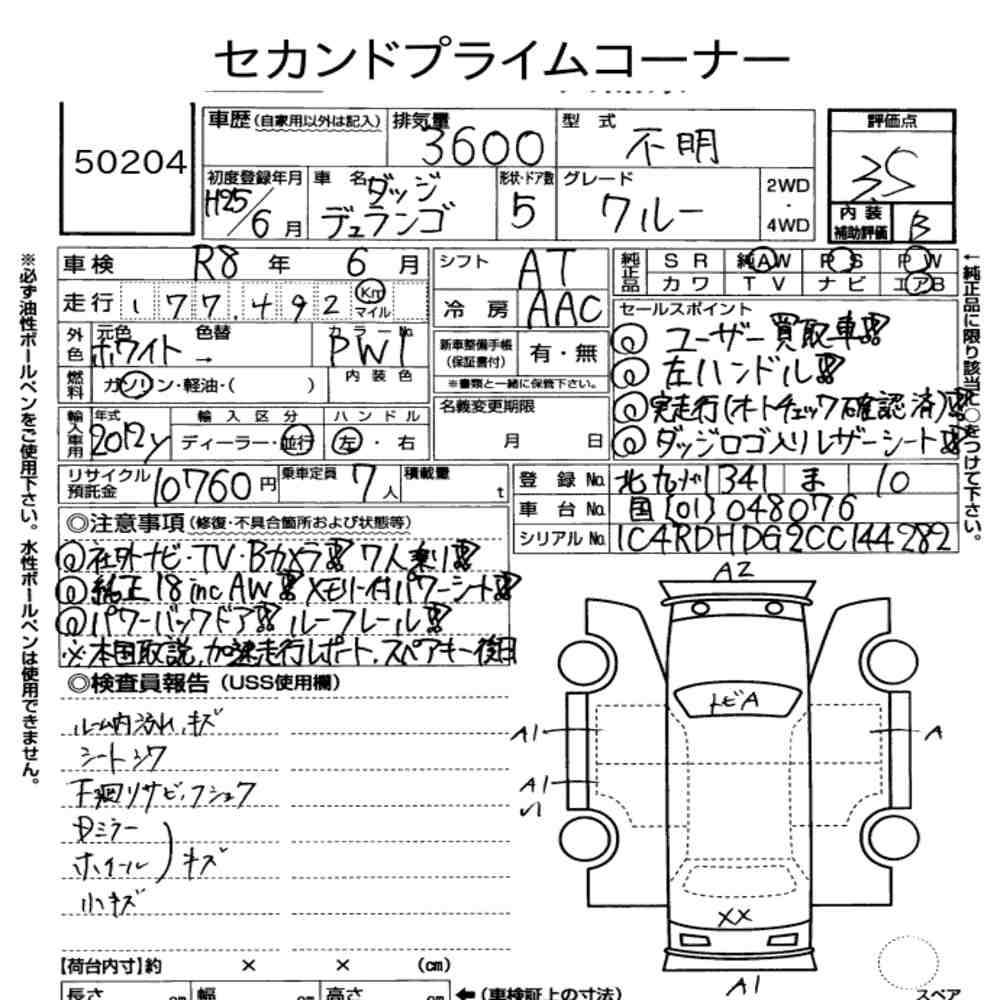 セカンドプライムコーナー
50204
車歴(自家用以外は記入)
排気量 3600
型式 不明
評価点 3S
内装補助評価 B
初度登録年月 H25/6月
車名 ダッジ デュランゴ
形状・ドア数 5
グレード クルー
2WD・4WD
車検 R8年 6月
シフト AT
純正品 SR 純AW PS PW
カワ TV ナビ エアB
走行 177,492 Km マイル
冷房 AAC
セールスポイント
◎ ユーザー買取車!!
◎ 左ハンドル!!
◎ 実走行(オートチェック確認済)!!
◎ ダッジロゴ入りレザーシート!!
外色 元色 ホワイト 色替 →
カラーNo. PW7
新車整備手帳(保証書付) 有・無
※書類と一緒に保管下さい。
燃料 ガソリン・軽油・( )
内装色
名義変更期限 月 日
輸入車用 年式 2012y
輸入区分 ディーラー・並行
ハンドル 左・右
リサイクル預託金 10760円
乗車定員 7人
積載量 t
登録No. 北九州 341 ま 10
車台No. 国[01]048076
シリアルNo. 1C4RDHDG2CC144282
◎注意事項(修復・不具合箇所および状態等)
◎ 社外ナビ・TV・Bカメラ!! 7人乗り!!
◎ 純正18incAW!! メモリー付パワーシート!!
◎ パワーバックドア!! ルーフレール!!
※本国取説,加速走行レポート,スペアキー後日
◎検査員報告(USS使用欄)
ルーム内汚れ,キズ
シートシワ
下廻りサビ・フショク
Dミラー
ホイール)キズ
小キズ
A2
トビA
A1
A
A1
XX
A1
【荷台内寸】約 × × (cm)
長さ cm 幅 cm 高さ cm ←(車検証上の寸法)
スペア
※必ず油性ボールペンをご使用下さい。水性ボールペンは使用できません。
←純正品に限り該当に○をつけて下さい。